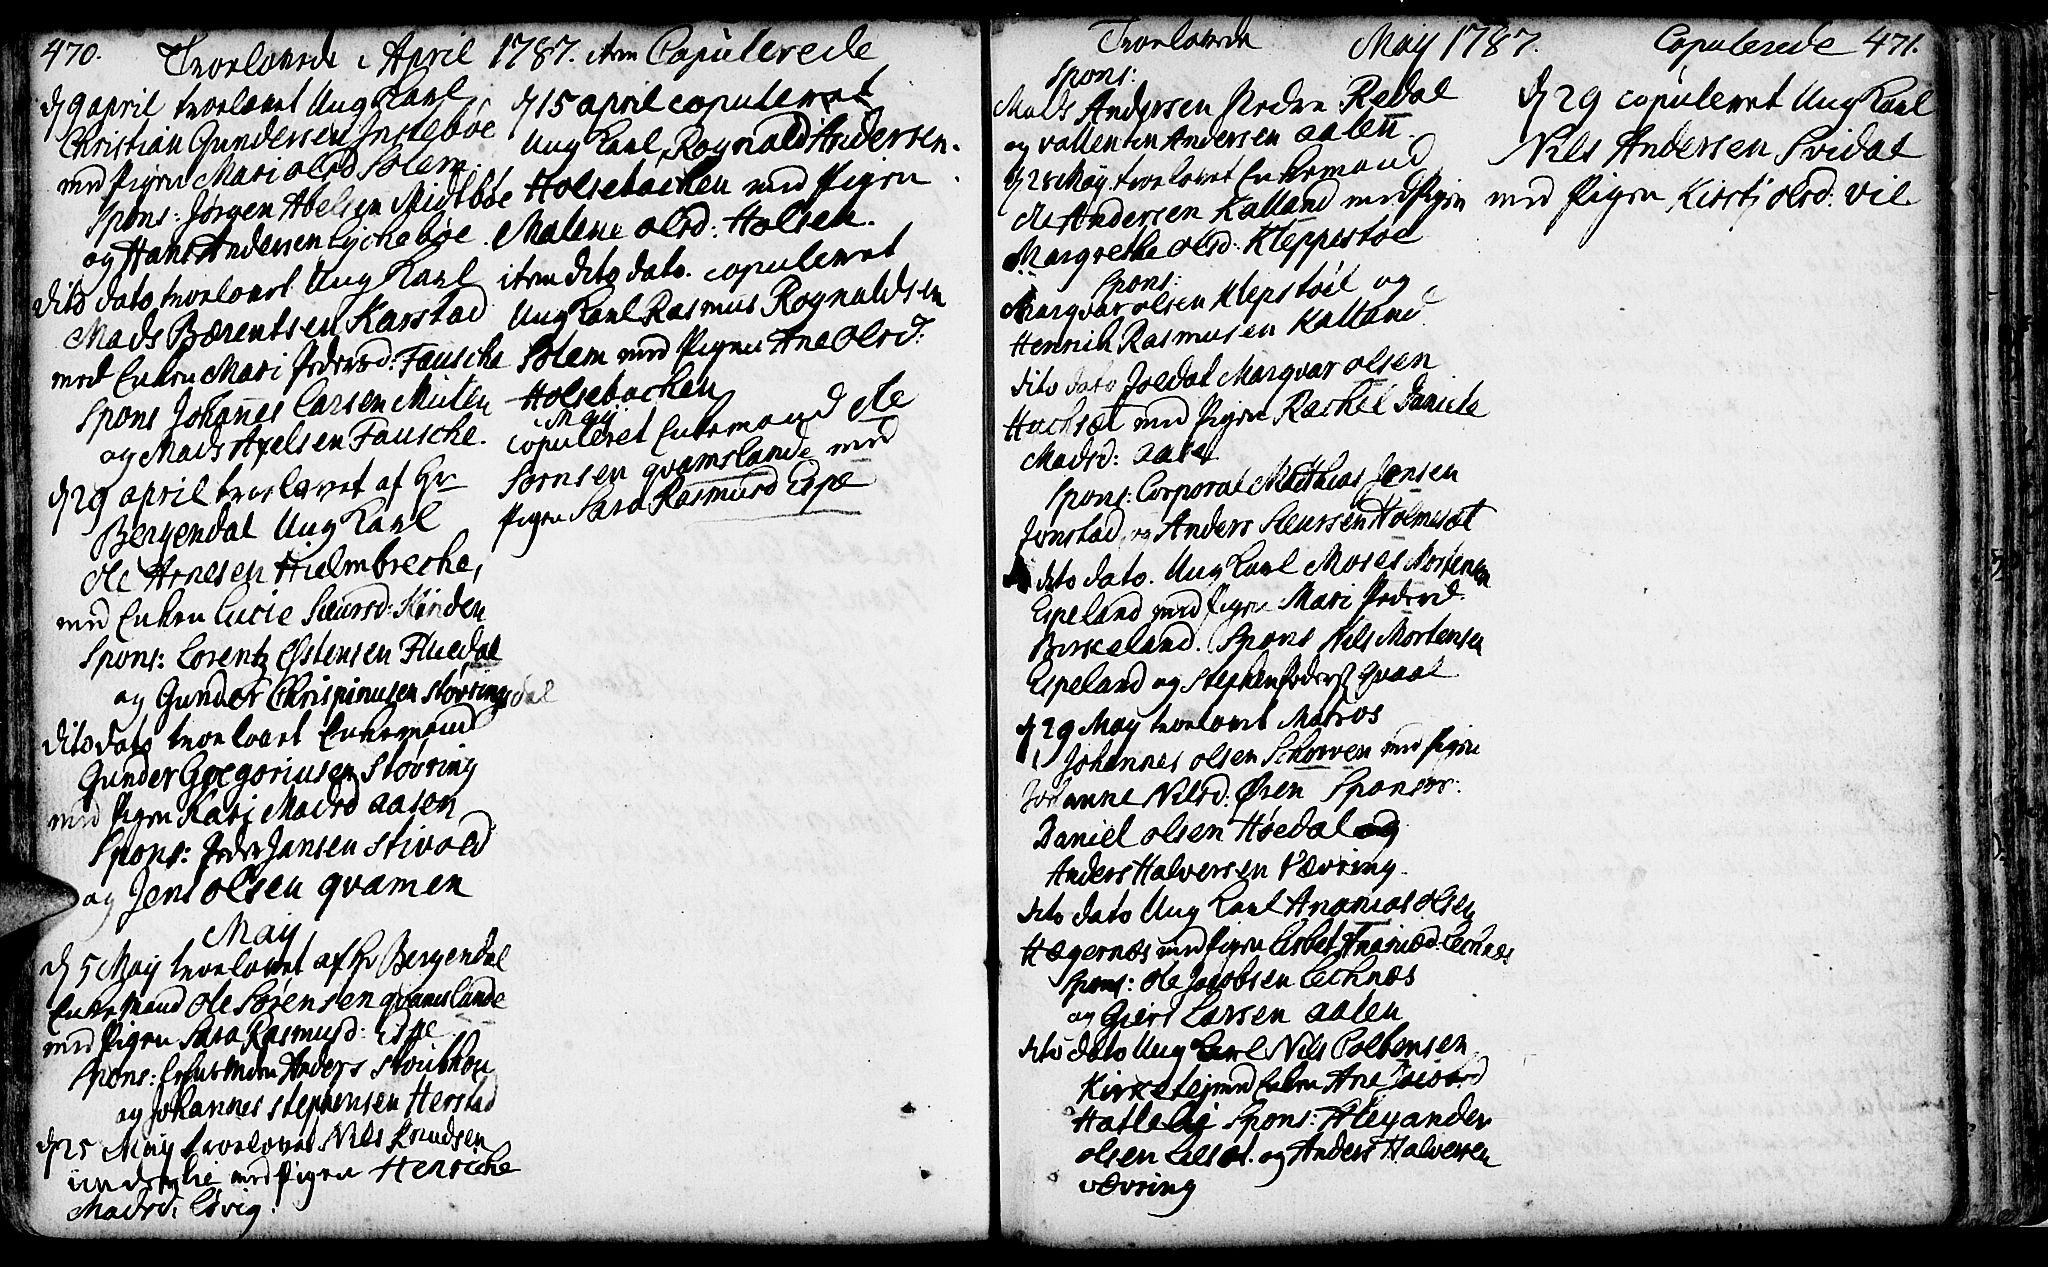 470. Troelovede i April 1787. item Copulerede
d 9 april troelovet Ung Karl
Christian Gundersen Indsebøe
med Pigen Mari olsd Solem.
Spons: Jørgen Abelsen Midtbøe
og Hans Andersen Lychebøe.
dito dato troelovet Ung Karl
Mads Bærentsen Karstad
med Enken Mari Pedersd: Fausche
Spons Johannes Larsen Muten
og Mads Axelsen Fausche.
d 29 april troelovet af Hr
Bergendal Ung Karl
Ole Arnesen Hielmbreche,
med Enken Lucie Siursd: Kinden
Spons: Lorentz Østensen Fluedal
og Gunder Chrispinusen Stovringsdal
dito dato troelovet Enkemand
Gunder Gregoriusen Stovring
med Pigen Kari Madsd aasen
Spons: Peder Jansen Stivold
og Jens olsen qvamen
May
d 5 May troelovet af Hr Bergendal
Enkemand Ole Sørensen qvamslande
med Pigen Sara Rasmusd: Espe
Spons: Anders
og Johannes Stephensen Herstad
d 25 May troelovet Nils Knudsen
inderlie med Pigen Henriche
Madsd: Løvig.
d 15 april copuleret
Ung Karl Rognald Andersen
Holsebachen med Pigen
Malene olsd: Holsen.
item dito dato. copuleret
Ung Karl Rasmus Rognaldsen
Solem med Pigen Ane Olsd:
Holsebachen
May
copuleret Enkemand Ole
Sørnsen qvamslande med
Pigen Sara Rasmusd Espe
Troelovede May 1787. Copulerede 471.
Spons:
Mads Andersen Nedre Redal
og vallentin Andersen aalen.
d 28 May troelovet Enkemand
Ole Andersen Kalland med Pigen
Margrethe olsd: Kleppestoe
Spons:
Marqvar olsen Klepstøel og
Henrich Rasmusen Kalland.
dito dato Soldat Marqvar olsen
Huchset med Pigen Rachel Daniela
Madsd: aase
Spons: Corporal Matthias Jensen
Jonstad og Anders Siursen Holmeset
dito dato. Ung Karl Moses Mortensen
Espeland med Pigen Mari Pedersd.
Birkeland. Spons Nils Mortensen
Espeland og Stephen Peders qvaal
d 29 May troelovet Matros
Johannes olsen Schorven med Pigen
Johanne Nilsd: Øren Sponsor:
Daniel olsen Høedal og
Anders Halversen Vævring.
dito dato Ung Karl Ananias olsen
Hægernæs med Pigen Lisbet Lechnæs
Spons: Ole Jacobsen Lechnæs
og Giert Larsen aalen
dito dato Ung Karl Nils Colbensen
Kirketej med Enken Ane
Hatlelij Spons: Alexander
olsen og Anders Halversen
vævring
d 29 copuleret Ung Karl
Nils Andersen Svidal
med Pigen Kirstj olsd: vie